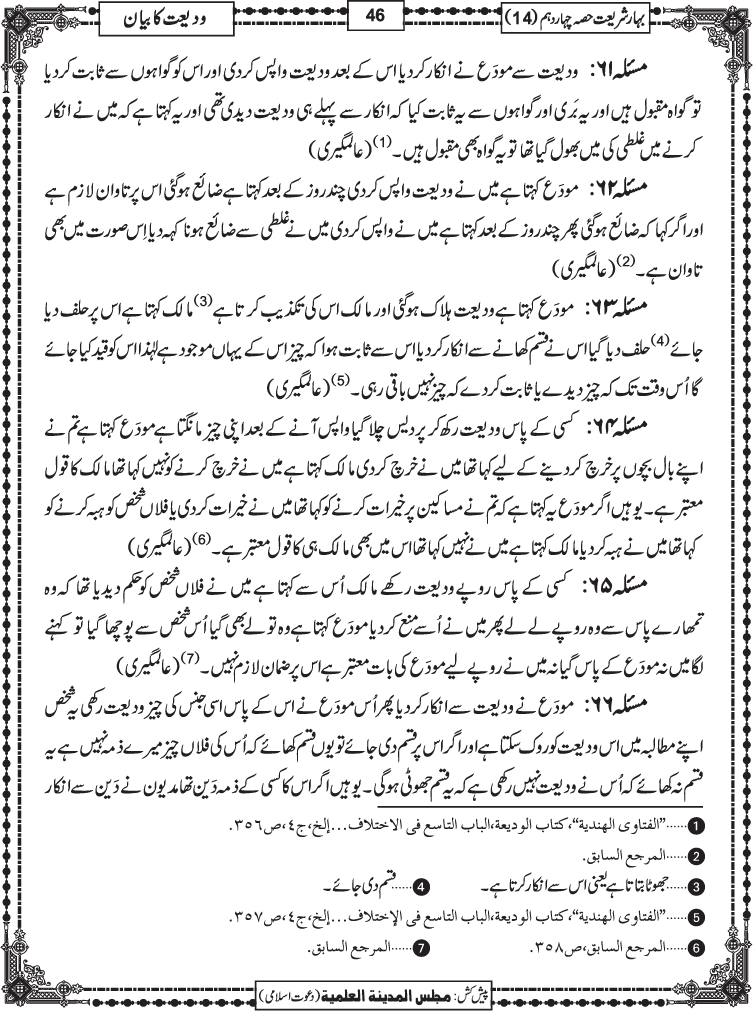 بہارِ شریعت حصہ چہاردہم (14)
46
ودیعت کا بیان
مسئلہ ۶۱: ودیعت سے مودَع نے انکار کردیا اس کے بعد ودیعت واپس کردی اور اس کو گواہوں سے ثابت کردیا
تو گواہ مقبول ہیں اور یہ بَری اور گواہوں سے یہ ثابت کیا کہ انکار سے پہلے ہی ودیعت دیدی تھی اور یہ کہتا ہے کہ میں نے انکار
کرنے میں غلطی کی میں بھول گیا تھا تو یہ گواہ بھی مقبول ہیں۔(1) (عالمگیری)
مسئلہ ۶۲: مودَع کہتا ہے میں نے ودیعت واپس کردی چند روز کے بعد کہتا ہے ضائع ہوگئی اس پر تاوان لازم ہے
اور اگر کہا کہ ضائع ہوگئی پھر چند روز کے بعد کہتا ہے میں نے واپس کردی میں نے غلطی سے ضائع ہونا کہہ دیا اِس صورت میں بھی
تاوان ہے۔(2) (عالمگیری)
مسئلہ ۶۳: مودَع کہتا ہے ودیعت ہلاک ہوگئی اور مالک اس کی تکذیب کرتا ہے(3) مالک کہتا ہے اس پر حلف دیا
جائے(4) حلف دیا گیا اس نے قسم کھانے سے انکار کردیا اس سے ثابت ہوا کہ چیز اس کے یہاں موجود ہے لہٰذا اس کو قید کیا جائے
گا اُس وقت تک کہ چیز دیدے یا ثابت کردے کہ چیز نہیں باقی رہی۔(5) (عالمگیری)
مسئلہ ۶۴: کسی کے پاس ودیعت رکھ کر پردیس چلا گیا واپس آنے کے بعد اپنی چیز مانگتا ہے مودَع کہتا ہے تم نے
اپنے بال بچوں پر خرچ کردینے کے لیے کہا تھا میں نے خرچ کردی مالک کہتا ہے میں نے خرچ کرنے کو نہیں کہا تھا مالک کا قول
معتبر ہے۔ یوہیں اگر مودَع یہ کہتا ہے کہ تم نے مساکین پر خیرات کرنے کو کہا تھا میں نے خیرات کردی یا فلاں شخص کو ہبہ کرنے کو
کہا تھا میں نے ہبہ کردیا مالک کہتا ہے میں نے نہیں کہا تھا اس میں بھی مالک ہی کا قول معتبر ہے۔(6) (عالمگیری)
مسئلہ ۶۵: کسی کے پاس روپے ودیعت رکھے مالک اُس سے کہتا ہے میں نے فلاں شخص کو حکم دیدیا تھا کہ وہ
تمھارے پاس سے وہ روپے لے لے پھر میں نے اُسے منع کردیا مودَع کہتا ہے وہ تو لے بھی گیا اُس شخص سے پوچھا گیا تو کہنے
لگا میں نہ مودَع کے پاس گیا نہ میں نے روپے لیے مودَع کی بات معتبر ہے اس پر ضمان لازم نہیں۔(7) (عالمگیری)
مسئلہ ۶۶: مودَع نے ودیعت سے انکار کردیا پھر اُس مودع نے اس کے پاس اسی جنس کی چیز ودیعت رکھی یہ شخص
اپنے مطالبہ میں اس ودیعت کو روک سکتا ہے اور اگر اس پر قسم دی جائے تو یوں قسم کھائے کہ اُس کی فلاں چیز میرے ذمہ نہیں ہے یہ
قسم نہ کھائے کہ اُس نے ودیعت نہیں رکھی ہے کہ یہ قسم جھوٹی ہوگی۔ یوہیں اگر اس کا کسی کے ذمہ دَین تھا مدیون نے دَین سے انکار
1 ......"الفتاوی الهندية"، کتاب الوديعة، الباب التاسع فی الاختلاف...إلخ، ج٤، ص٣٥٦.
2 ......المرجع السابق.
3 ......جھوٹا بتاتا ہے یعنی اس سے انکار کرتا ہے۔ 4 ......قسم دی جائے۔
5 ......"الفتاوی الهندية"، کتاب الوديعة، الباب التاسع فی الإختلاف...إلخ، ج٤، ص٣٥٧.
6 ......المرجع السابق، ص٣٥٨. 7 ......المرجع السابق.
پیش کش: مجلس المدینة العلمیة (دعوت اسلامی)